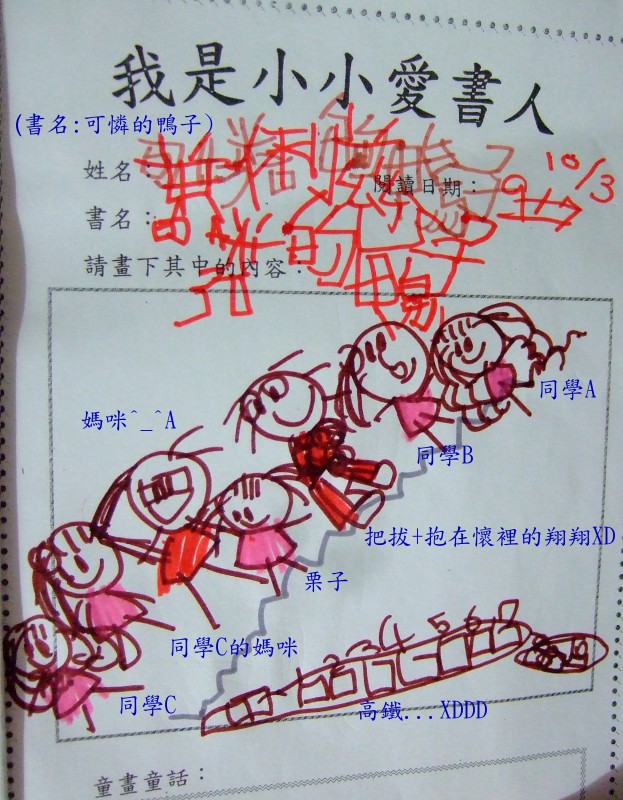 我是小小愛書人
(書名:可憐的鴨子)
姓名：
閱讀日期：
10/3
書名：
的鴨子
請畫下其中的內容：
同學A
媽咪^_^A
同學B
把拔+抱在懷裡的翔翔XD
栗子
同學C的媽咪
同學C
高鐵...XDDD
童畫童話：